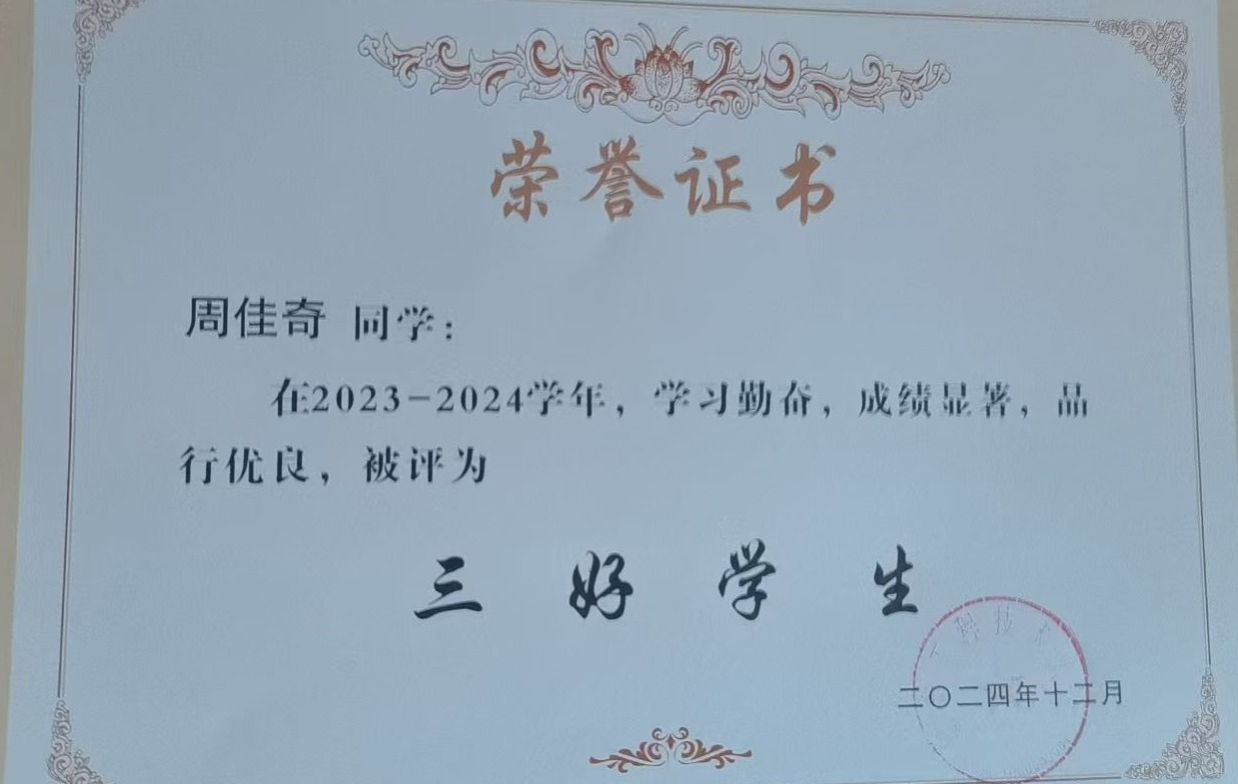 荣誉证书
周佳奇 同学：
在2023-2024学年，学习勤奋，成绩显著，品
行优良，被评为
三好学生
二〇二四年十二月